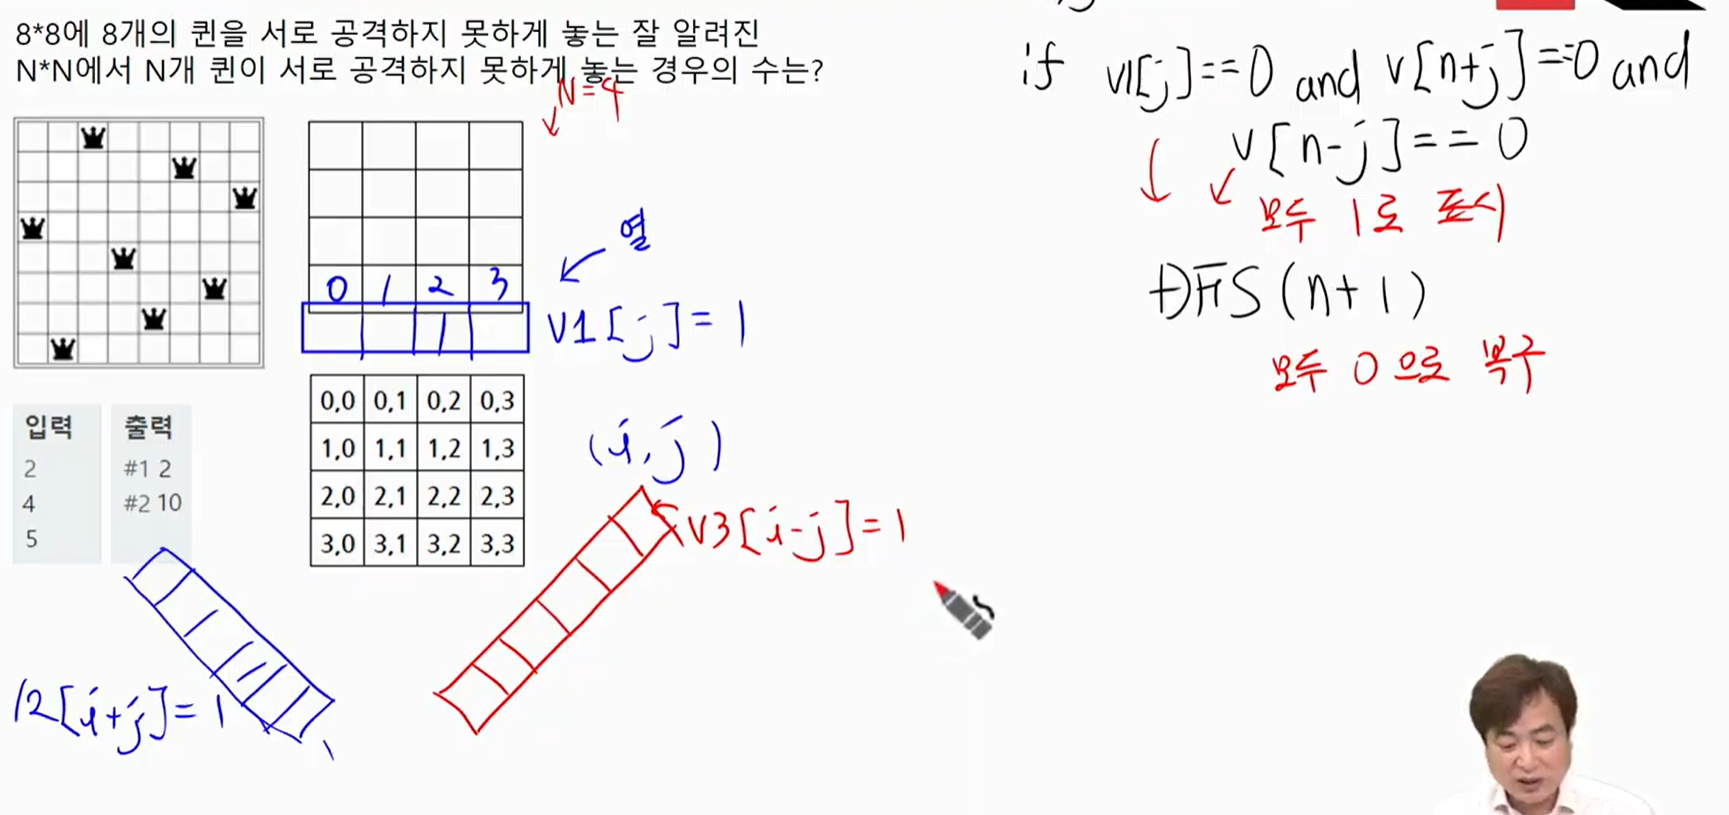 8*8에 8개의 퀸을 서로 공격하지 못하게 놓는 잘 알려진
N*N에서 N개 퀸이 서로 공격하지 못하게 놓는 경우의 수는?
N=4
0 1 2 3
1
열
V1[j]=1
입력
2
4
5
출력
#1 2
#2 10
0,0 0,1 0,2 0,3
1,0 1,1 1,2 1,3
2,0 2,1 2,2 2,3
3,0 3,1 3,2 3,3
(i,j)
V3[i-j]=1
2[i+j]=1
if V1[j]==0 and V[n+j]==0 and
V[n-j]==0
모두 1로 표시
DFS(n+1)
모두 0으로 복구